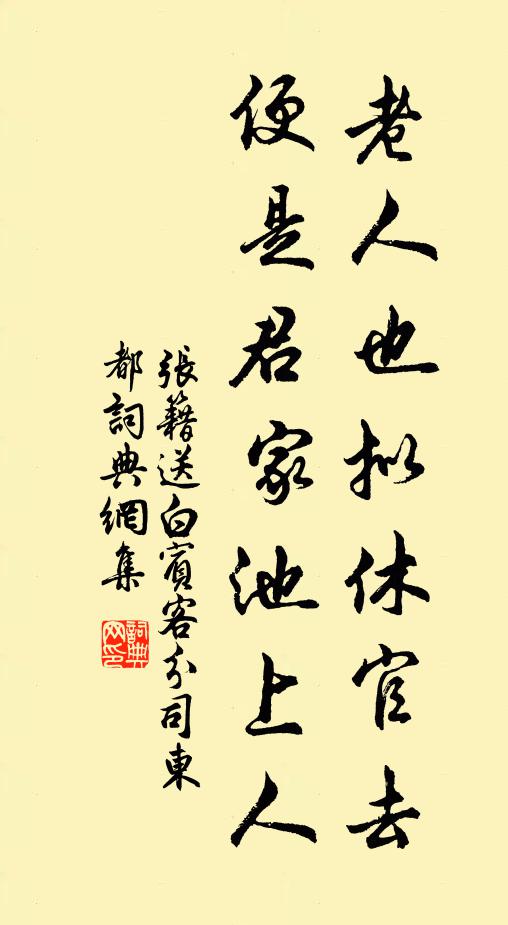 老人也拟休官去
便是君家池上人
張籍送白賓客分司東
都詞典網集
詞典
网印